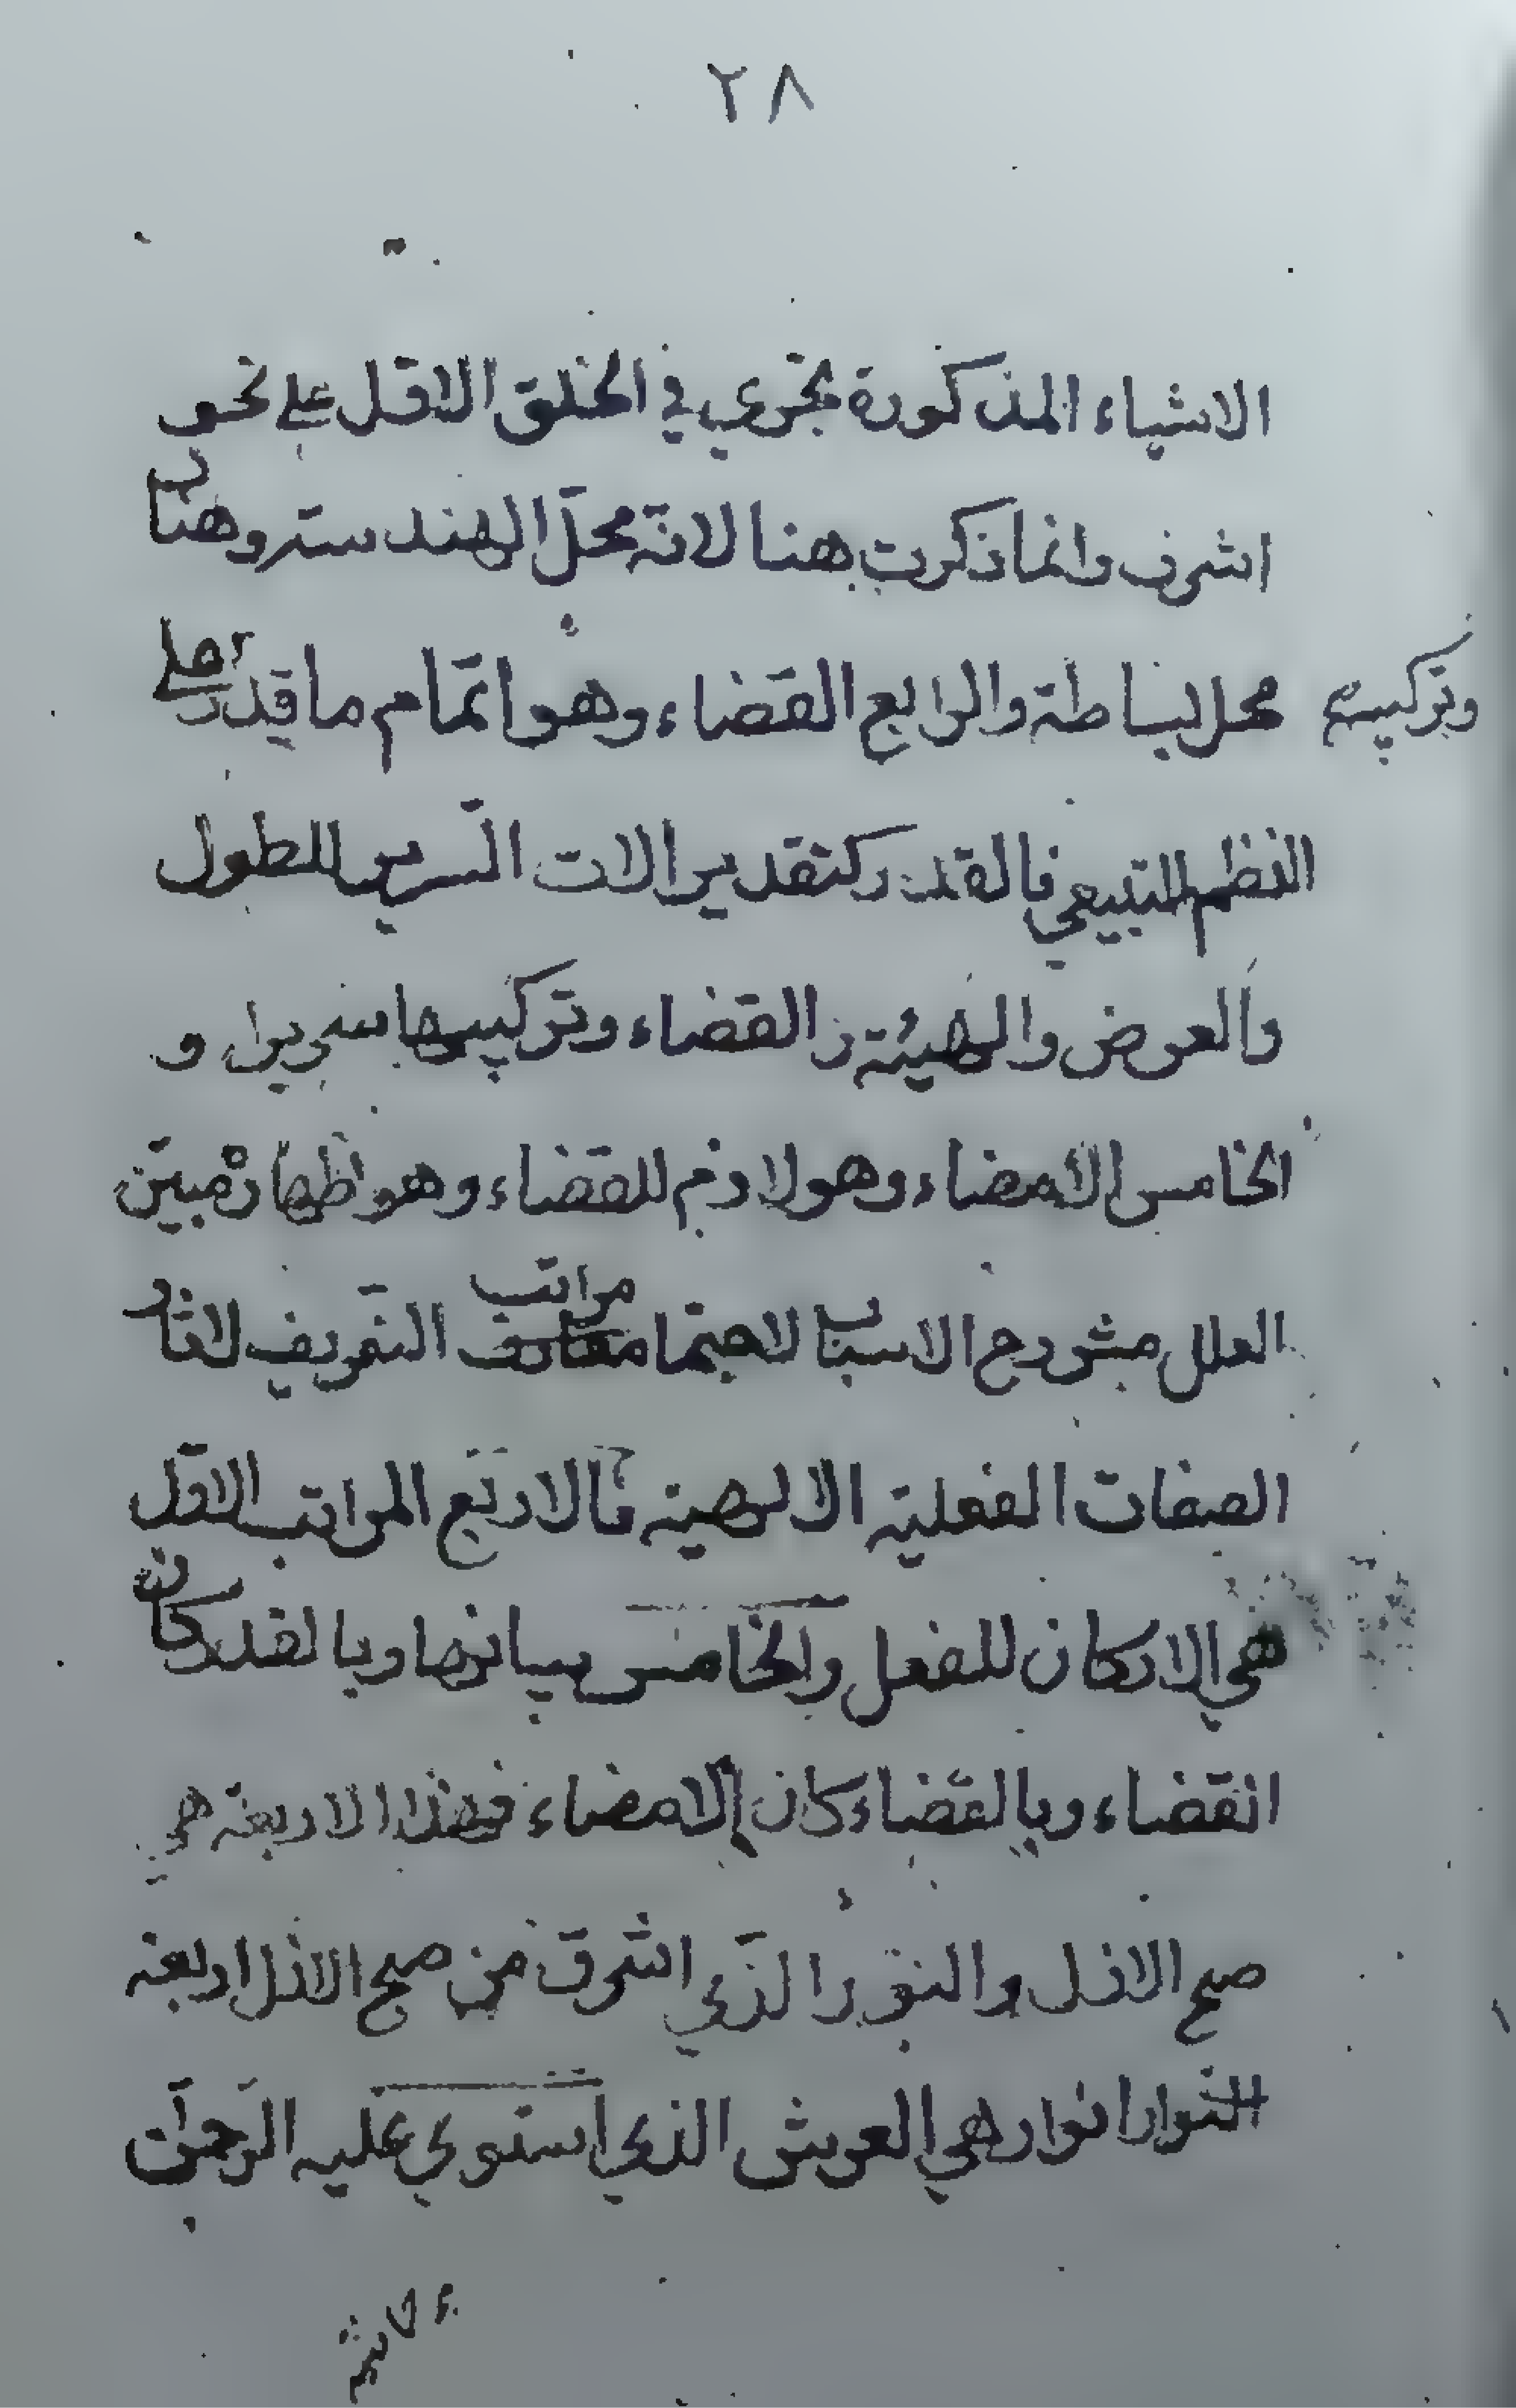 ٢٨
الاشياء المذكورة تجري في الخلق الاول على نحو
اشرف وانما ذكرت هنا لانه محل الهندسة وهناك
محل بساطة والرابع القضاء وهو اتمام ما قدر على
وتركيبه
النظم الطبيعي فالقدر كتقدير الات السرير للطول
والعرض والهيئة والقضاء وتركيبها سريرا و
الخامس الامضاء وهو لازم للقضاء وهو اظهاره مبين
العلل مشروح الاسباب لاجتماع مراتب التعريف لاثار
الصفات الفعلية الالهية فالاربع المراتب الاول
هي الاركان للفعل والخامس بيانها وبالقدر كان
القضاء وبالقضاء كان الامضاء فهذا الاربعة هي
صبح الازل والنور الذي اشرق من صبح الازل اربعة
انوار هي العرش الذي استوى عليه الرحمن